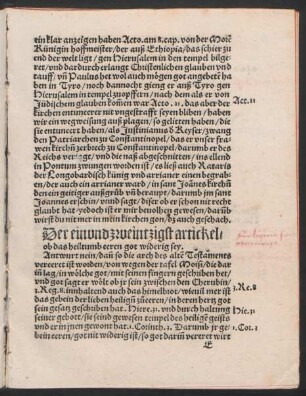 ein klar anzeigen haben Acto. am 8. cap. von der Moꝛē
Künigin hoffmeister/ der auß Ethiopia/ das schier zu
end der welt ligt/ gen Hierusalem in den tempel bilge=
ret/ vnd dardurch erlangt Christenlichen glauben vnd
tauff/ vñ Paulus het wol auch mögen got angebetẽ ha
ben in Tyro/ noch dannocht gieng er auß Tyro gen
Hierusalem in tempel zu opffern/ nach dem als er von
Jüdischem glauben komen war Acto. 21. das aber der
Act. 21
kirchen entunerer nit vngestrafft seyen bliben/ haben
wir ein wegweisung auß plagen/ so gelitten haben/ die
sie entuneret haben/ als Justinianus d Keyser/ zwang
den Patriarchen zu Constantinopel/ das er vnser frawen
kirchē zerbrech zu Constantinopel/ darumb er des
Reichs veriagt/ vnd die naß abgeschnitten/ ins ellend
in Pontum zwungen worden ist/ es ließ auch Rataris
der Longobardisch künig vnd arrianer einen begra=
ben/ der auch ein arrianer ward/ in sant Joānes kirchē
den ein geitiger außgrůb vñ beraupt/ darumb jm sant
Joannes erschin/ vnnd sagt/ diser ob er schon nit recht
glaubt hat/ yedoch ist er mir beuolhen gewesen/ darũb
wirst du nimer in mein kirchen gon/ dz auch geschach.
Der einvndzweintzigst artickel.
ob das heiltumb eeren got widerig sey.
Antwurt nein/ dañ so die arch des altẽ Testaments
vereeret ist worden/ von wegen der tafel Moisi/ die dar
iñ lag/ in wölche got/ mit seinen fingern geschriben het/
vnd got sagt er wölt ob jr sein zwischen den Cherubin/
3. Reg. 8. innhaltend auch das himelbrot/ wieuil mer ist
3. Re. 8
das gebein der lieben heiligñ züeeren/ in deren hertz got
sein gesatz geschriben hat. Hiere. 31. vnd durch haltung
Hie. 31
seiner gebott/ sie seind gewesen tempel des heiligē geists
vnd er in jnen gewont hat. 1. Corinth. 3. Darumb jr ge=
1. Cor. 3
bein eeren/ got nit widerig ist/ so got darũ vereret wirt
E